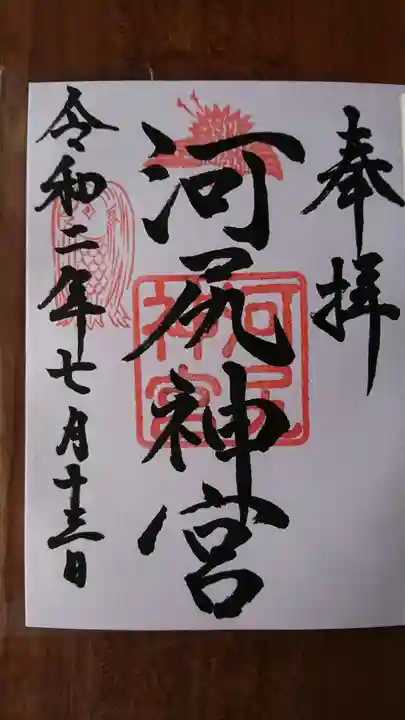 奉拝
河尻神宮
河尻神宮
令和二年七月十三日